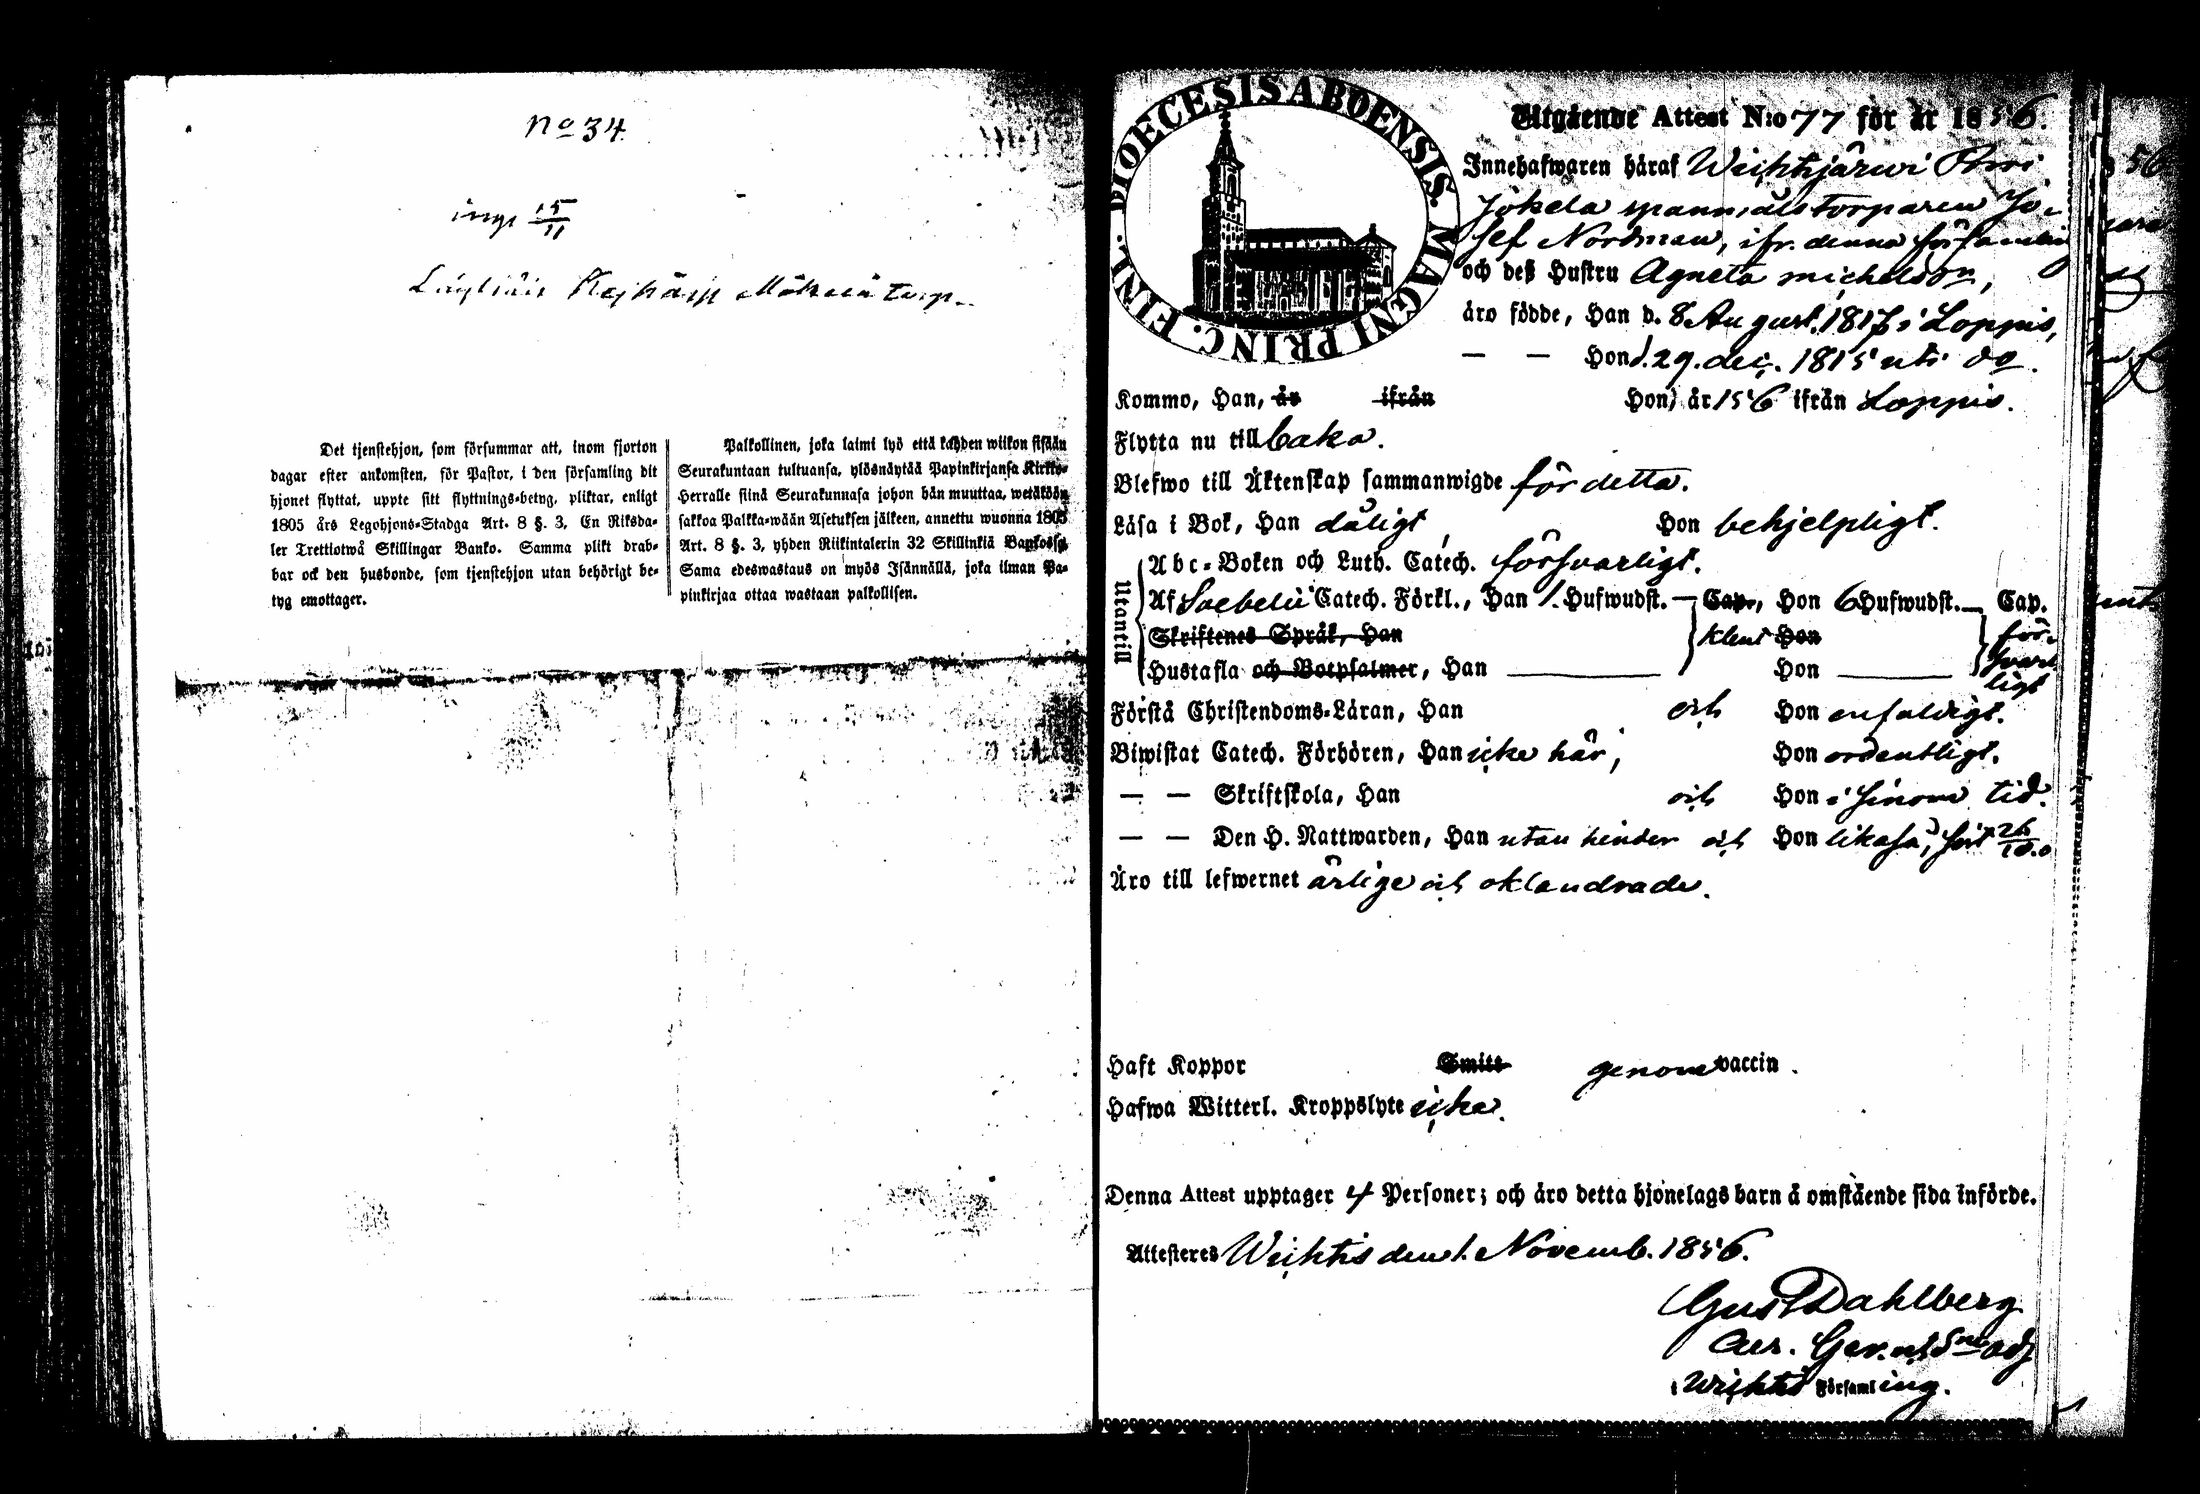 No 34.
ingi 15/11
Läyliäis Kejhäis Mäkelä torp.
Det tjenstehjon, som försummar att, inom fjorton
dagar efter ankomsten, för Pastor, i den församling dit
hjonet flyttat, uppte sitt flyttnings-betyg, pliktar, enligt
1805 års Legohjons-Stadga Art. 8 §. 3, En Riksda-
ler Trettiotwå Skillingar Banko. Samma plikt drab-
bar ock den husbonde, som tjenstehjon utan behörigt be-
tyg emottager.
Palkollinen, joka laimi lyö että kahden wiikon sisään
Seurakuntaan tultuansa, ylösnäytää Papinkirjansa Kirkko-
Herralle siinä Seurakunnasa johon hän muuttaa, wetäköön
sakkoa Palkka-wään Asetuksen jälkeen, annettu wuonna 1805
Art. 8 §. 3, yhden Riikintalerin 32 Skillinkiä Bankossa.
Sama edeswastaus on myös Isännällä, joka ilman Pa-
pinkirjaa ottaa wastaan palkollisen.
DIOECESIS ABOENSIS. MAGNI PRINC. FINL.
Utgående Attest N:o 77 för år 1856.
Innehafwaren häraf Wichtjärwi
Jokela spannmålstorparen Jo-
sef Nordman, ifr. denna församling
och deß Hustru Agneta Michelsdr,
äro födde, Han d. 8 August. 1817 i Loppis,
— — Hon d. 29. dec. 1815 uti do.
Kommo, Han, år ifrån Hon, år 156 ifrån Loppis.
Flytta nu till baka.
Blefwo till Äktenskap sammanwigde för detta.
Läsa i Bok, Han dåligt, Hon behjelpligt.
Utantill
Abc-Boken och Luth. Catech. försvarligt.
Af Soebelii Catech. Förkl., Han 1. Hufwudst. — Cap., Hon 6 Hufwudst. — Cap.
Skriftenes Språk, Han klent Hon för-
Hustafla och Botpsalmer, Han Hon svar-
ligt
Förstå Christendoms-Läran, Han och Hon enfaldigt.
Biwistat Catech. Förhören, Han icke här, Hon ordentligt.
— — Skriftskola, Han och Hon i sinom tid.
— — Den H. Nattwarden, Han utan hinder och Hon likaså, sist 26/10.
Äro till lefwernet ärlige och oklandrade.
Haft Koppor Smitt genom vaccin.
Hafwa Witterl. Kroppslyte icke.
Denna Attest upptager 4 Personer; och äro detta hjonelags barn å omstående sida införde.
Attesteres Wichtis den 1. Novemb. 1856.
Gust Dahlberg
i Wichtis Församling.